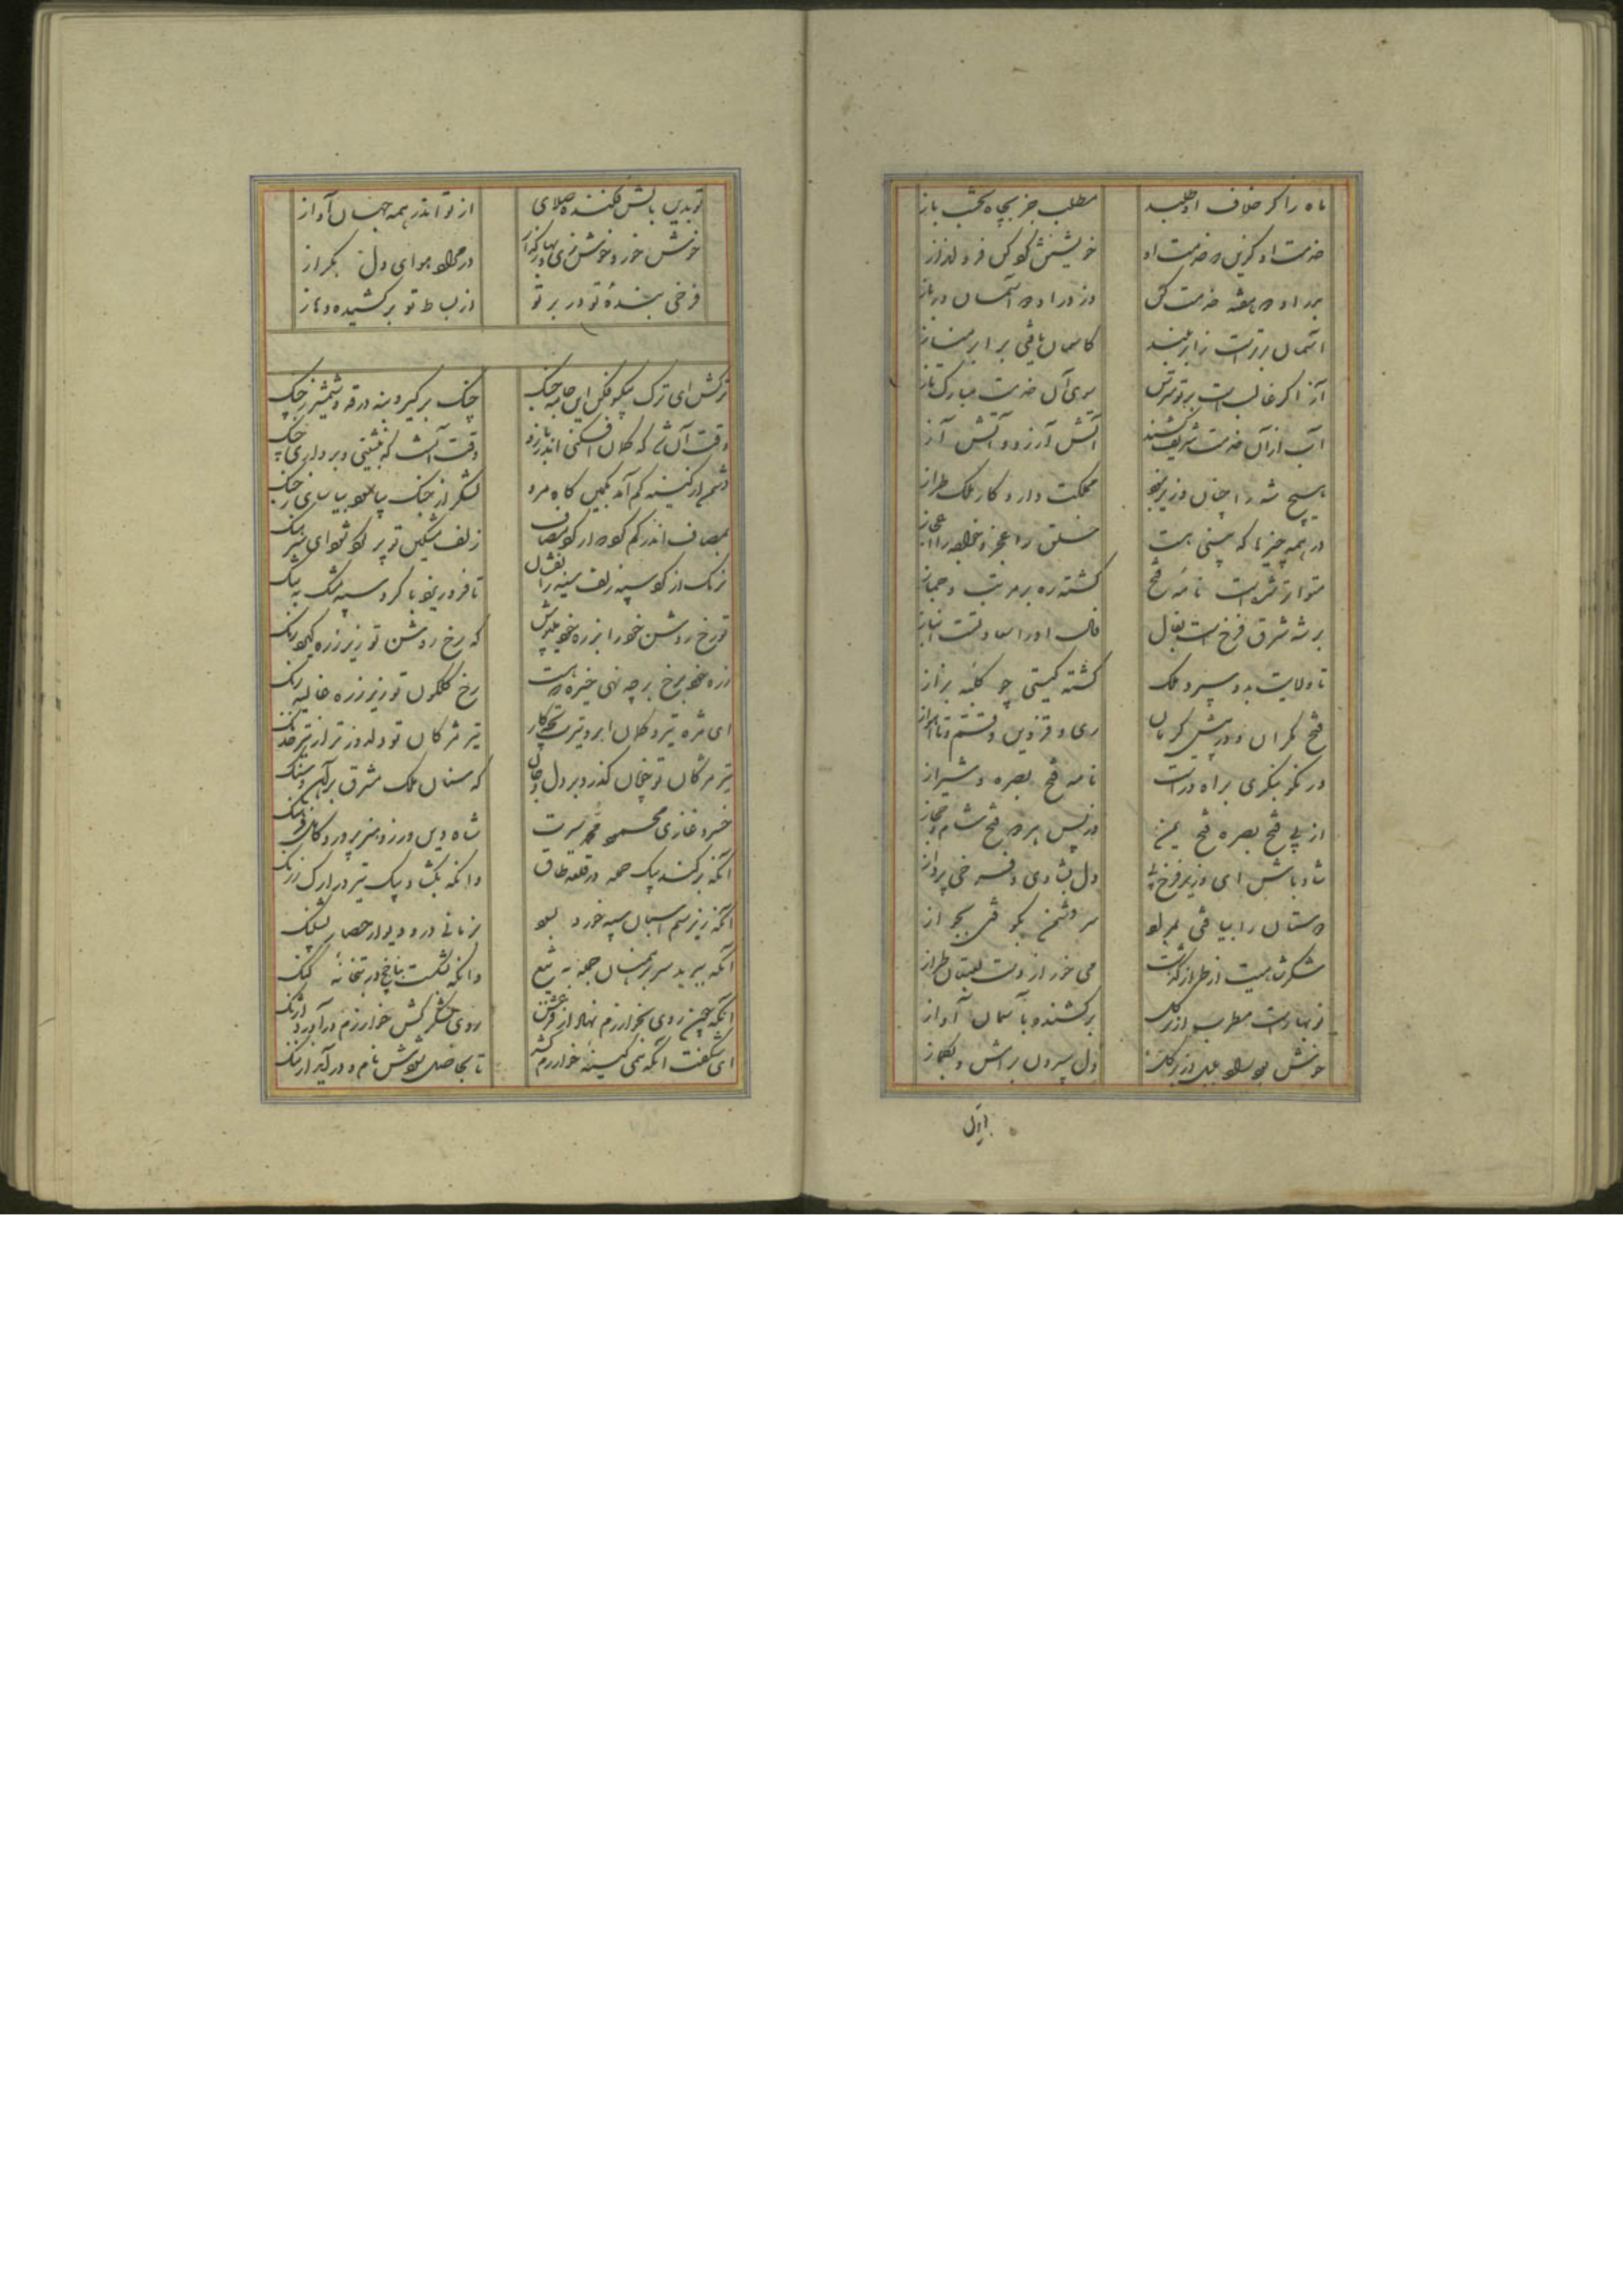 ماه را کر خلاف او طلبد مطلب جز بچاه نخشب باز
خدمت او کزین و خدمت او خویشتن کوکن فرو
بر در او دو هفته خدمت کن وز در او در آسمان در باز
آسمان برترست زابر بلند کاسمان یافتی برابر
آز اکر غالبست بر تو مترس سوی آن خدمت مبارک تاز
آب ازان خدمت شریف آتش آرزو و آتش آز
هیچ شه را چنان وزیر نبود مملکت دار و کار ملک طراز
در همه چیزها که بینی هست خلق را عجز و خواجه را اعجاز
متواتر شدست نامه فتح کشته ره پر مرتب و جماز
بر شه شرق فرخ است بفال فال او را سعادتست انباز
تا ولایت بدو سپرد ملک کشته کیتی چو کلبه بزاز
فتح مکران و در پیش کرمان ری و قزوین و
در نکر بنکری براه درست نامه فتح بصره و شیراز
از پی فتح بصره فتح یمن در پس هر دو فتح شام و حجاز
شاد باش ای وزیر فرخ پی دل بشادی و خرمی پرداز
دوستان را بیافتی بمراد سر دشمن بکوفتی بجواز
شکر شاهیت از طراز کذشت می خور از دست لعبتان طراز
نوبهارست مطرب از بر کل برکشنده بآسمان آواز
خوش بود خاصه وزیر دل سپردن برامش و بکماز
تو بدین
تو بدین بالش فکنده صلای از تو اندر همه جهان آواز
خوش خور و خوش زی و در مراد هوای دل بکراز
فرخی بنده تو در بر تو از بساط تو برکشیده دماز
ترکش ای ترک بیکسو فکن این جامه جنک چنک برکیر و بنه درقه و شمشیر ز چنک
وقت آن شد که کمان افکنی اندر بازو وقت آنست که بنشینی و برداری چنک
دشمن از کینه کم آمد بکمین کاه مرو لشکر از جنک بیاسود بیاسای ز جنک
بمصاف اندر کم کرد که از کرد مصاف زلف مشکین تو پر کرد شود ای سرهنک
رنک از کرد سیه زلف سیه را نفشان تا فرو ریزد با کرد سیه مشک به تنک
تو رخ روشن خود را بزره خود مپوش که رخ روشن تو زیر زره کیرد رنک
زره خود برخ بر چه نهی خیره که هست رخ کلکون تو زیر زره غالیه رنک
ای مژه تیر و کمان ابرو تیرت بچه کار تیر مژکان تو دلدوزتر از تیر خدنک
تیر مژکان تو چنان کذرد بر دل و جان که سنان ملک مشرق بر آهن و سنک
خسرو غازی محمود محمد سیرت شاه دین ورز و هنر پرور و کامل فرهنک
آنکه برکند بیک حمله در قلعه طاق وانکه بکشاد بیک تیر در ارک زرنک
آنکه زیر سم اسبان سپه خورد بسود بزمانی در و دیوار حصار بشلنک
آنکه ببرید سر برهمنان جمله به تیغ وانکه بشکست بتان بر در بتخانه کنک
آنکه چون روی بخوارزم نهاد از فزعش روی لشکرکش خوارزم درآورد آژنک
ای شکفت آنکه همی کینه خوارزم کشد تا بجاصل شودش نام و درآید از ننک